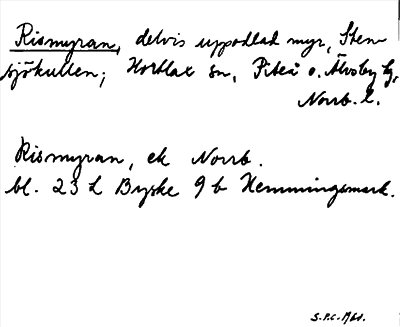 Rismyran, delvis uppodlad myr, Sten-
sjökullen; Hortlax sn, Piteå o. Älvsby tg,
Norrb. l.
Rismyran, ek Norrb.
bl. 23 L Byske 9 b Hemmingsmark.
S.P.C. 1961.